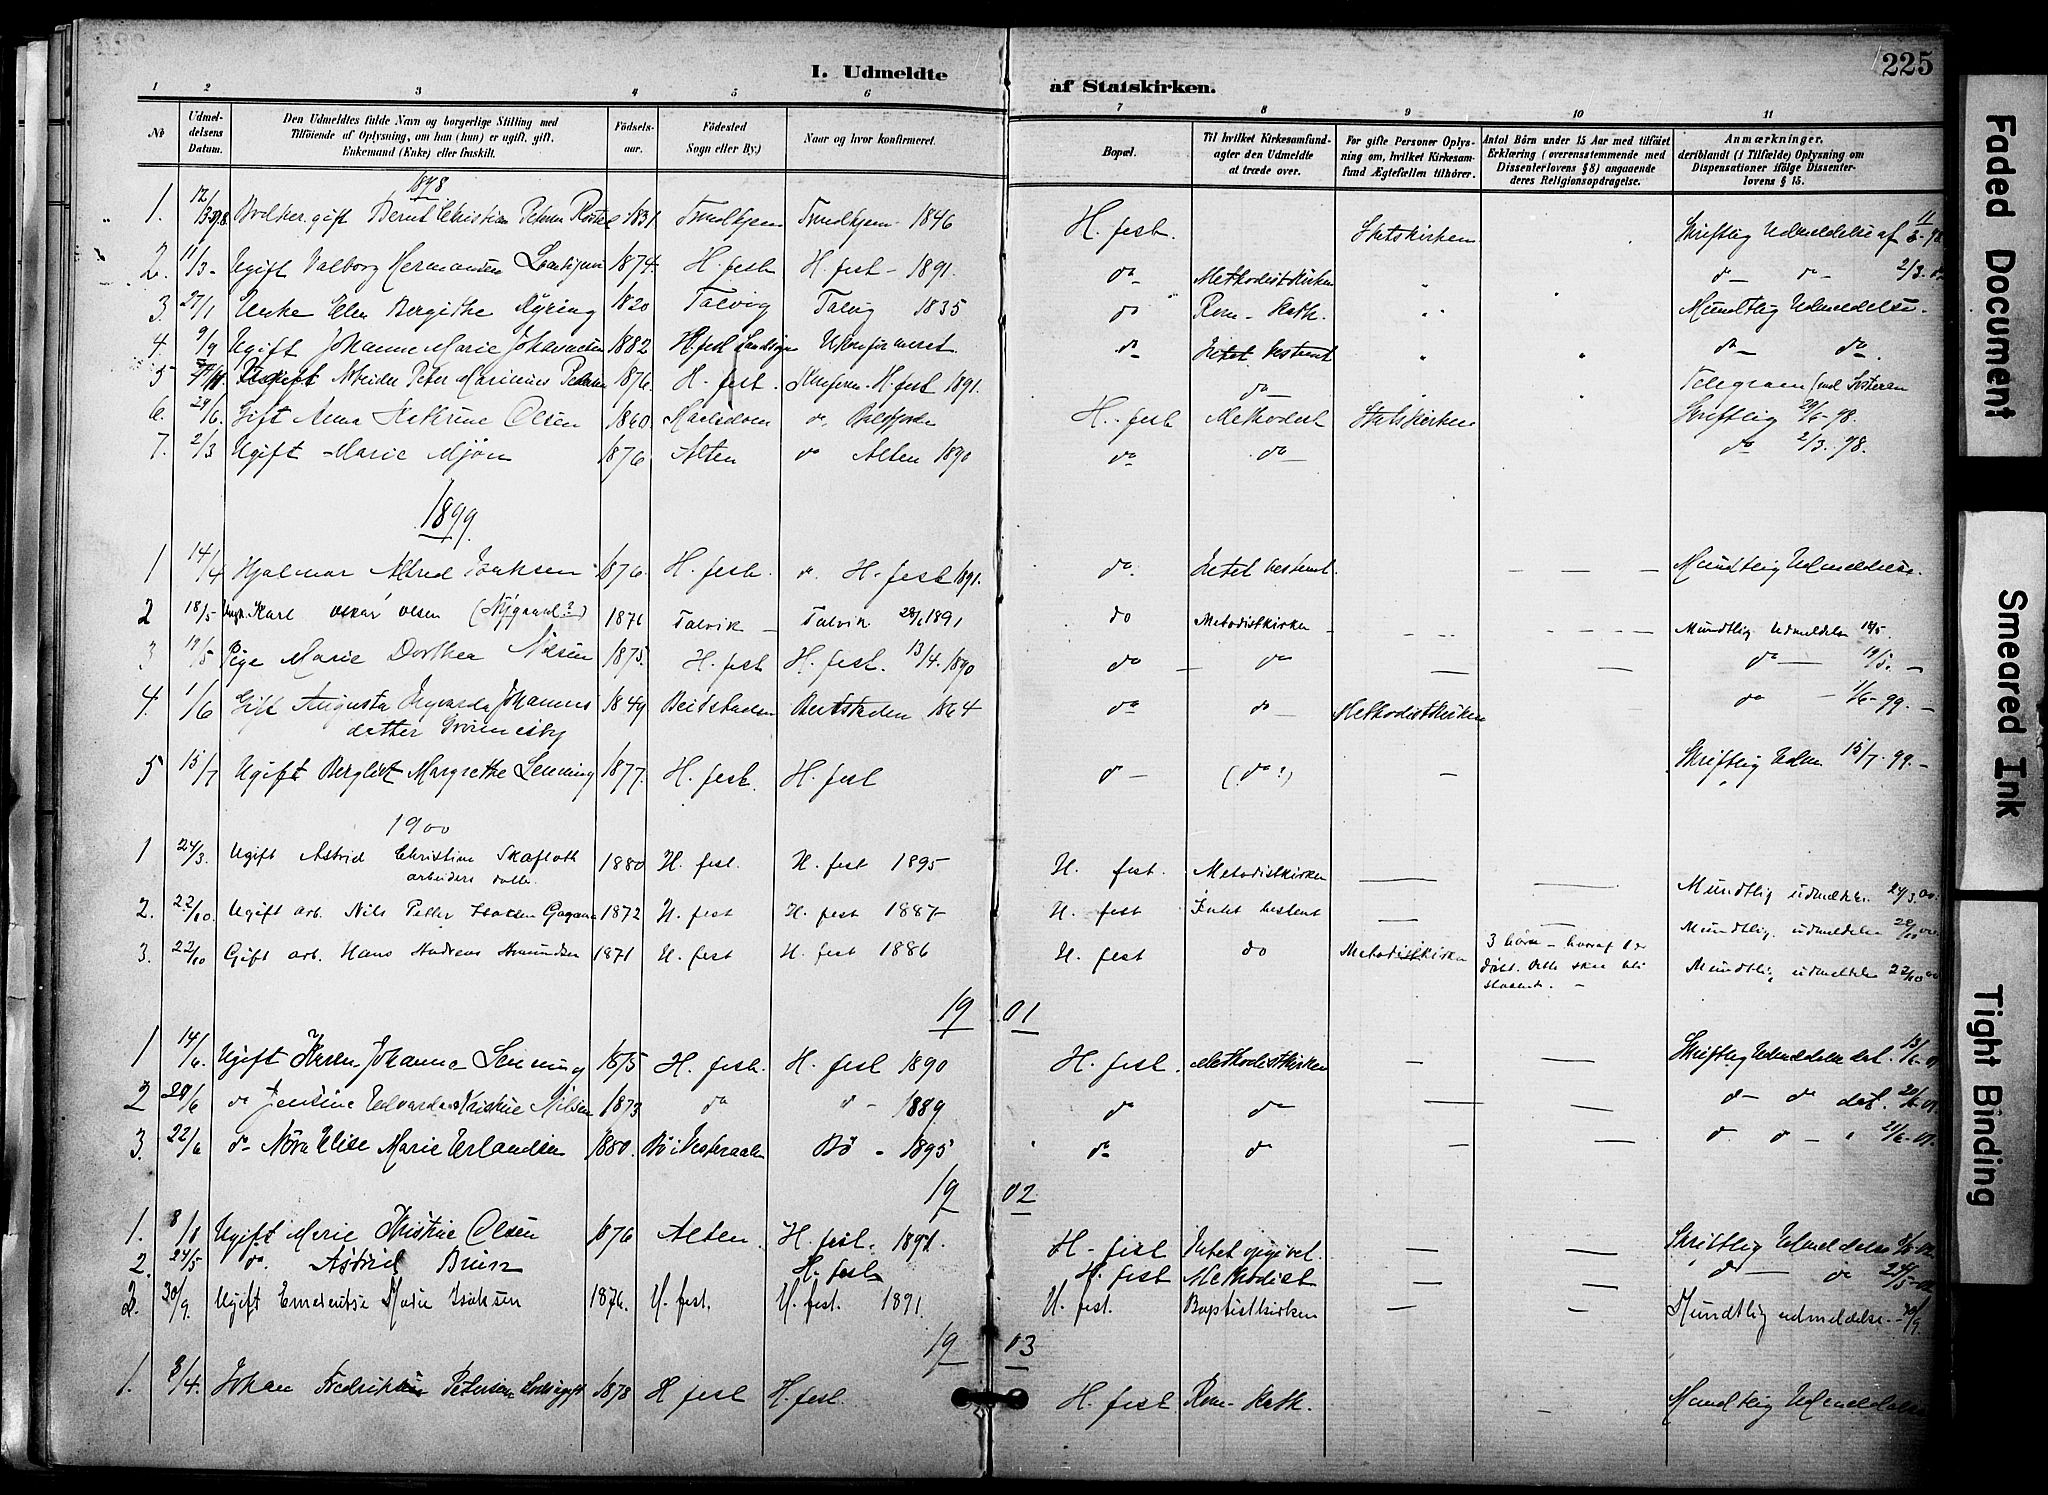 225
I. Udmeldte af Statskirken.
1 2 3 4 5 6 7 8 9 10 11
No
Udmel-
delsens
Datum.
Den Udmeldtes fulde Navn og borgerlige Stilling med
Tilføiende af Oplysning, om han (hun) er ugift, gift,
Enkemand (Enke) eller fraskilt.
Fødsels-
aar.
Fødested
Sogn eller By.)
Naar og hvor konfirmeret.
Bopæl.
Til hvilket Kirkesamfund-
agter den Udmeldte
at træde over.
For gifte Personer Oplys-
ning om, hvilket Kirkesam-
fund Ægtefællen tilhörer.
Antal Börn under 15 Aar med tilföiet
Erklæring (overensstemmende med
Dissenterlovens § 8) angaaende
deres Religionsopdragelse.
Anmærkninger.
deriblandt (i Tilfælde) Oplysning om
Dispensationer ifölge Dissenter-
lovens § 15.
1898
1. gift Bernt Christian 1831 Trondhjem Trondhjem 1846 H. fest. Statskirken Skriftlig Udmeldelse af
2. 11/3 Ugift Valborg Hermansen 1874 H. fest H. fest - 1891. do Methodistkirken do do 2/3.
3. 27/1 Enke Elen Bergithe Kyring 1820 Talvig Talvig 1835 do Rom. Kath. Mundtlig Udmeldelse.
4. 9/9 Ugift Johanne Marie 1882 H. fest Landsogn Ukonfirmeret do Intet bestemt do do
5 Ugift Arbeider Peter Marinus 1876. H. fest. Konfirm. H. fest 1891. do Telegram
6. 29/6. Gift Anna Kathrine Olsen 1860 d. H. fest Methodist Statskirken Skriftlig 29/6-98.
7. 2/3 Ugift Marie Mjøen 1876 Alten do Alten 1890 do do do 2/3. 98.
1899.
1 14/4 Hjalmar Alfred Isaksen 1876. H. fest. d. H. fest 1891. do. Intet bestemt. Mundtlig Udmeldelse.
2 18/5 Karl oskar olsen (Nygaard?) 1876 Talvik - Talvik 1891 do Metodistkirken Mundtlig Udmeldelse 18/5.
3 19/5 Pige Marie Dorthea Nilsen 1875. H. fest H. fest. 13/4. 1890 do do do 19/5.
4. 1/6 Gift Augusta Johannes 1849 Beidstaden Beidstaden 1864 do do Methodistkirken do 1/6-99.
datter
5 15/7 Ugift Bergliot Margrethe Lenning 1877. H. fest. H. fest d - (do?) Skriftlig Udm 15/7. 99.
1900
1 24/3. Ugift Astrid Christine Skafloth 1880 H. fest. H. fest 1895 H. fest. Metodistkirken Mundtlig udmeldelse 24/3.00.
arbeiders datter.
2. 22/10. Ugift arb. Nils Petter Isaksen 1872 H. fest H. fest 1887 H. fest Intet bestemt Mundtlig udmeldelse
3. 22/10 Gift arb. Hans Andreas Amundsen 1871 H. fest H. fest 1886 H. fest do Metodistkirken 3 børn - hvoraf 1 er Mundtlig udmeldelse 22/10 00
døbt. Dette skal bli
19 01
1 14/6. Ugift Karen Johanne Lenning 1875 H. fest. H. fest 1890 H. fest. Methodistkirken Skriftlig Udmeldelse dat. 13/6-01
2 20/6 do Jensine Edvarda Kristine Nilsen 1873 do d - 1889 do do d - do dat. 20/6-01.
3. 22/6 do Nora Elise Marie Erlandsen 1880. Bø i Vesteraalen Bø - 1895 do do d. d - 21/6-01.
19 02
1. Ugift Marie Kristine Olsen 1876 Alten. H. fest. 1891. H. fest Intet opgivet. Skriftlig Udmeldelse
2. 24/5 do. Astrid Bruun H. fest H. fest Methodist do - do 24/5-02
3. 30/9. Ugift Emerentse Marie Isaksen 1876. H. fest. H. fest. 1891. H. fest. Baptistkirken Mundtlig udmeldelse 30/9.
19 03
1. 8/4. Johan Fredriksen Petersen 1878 H fest H. fest. H. fest Rom-Kath. Mundtlig Udmeldelse
Faded Document
Smeared Ink
Tight Binding